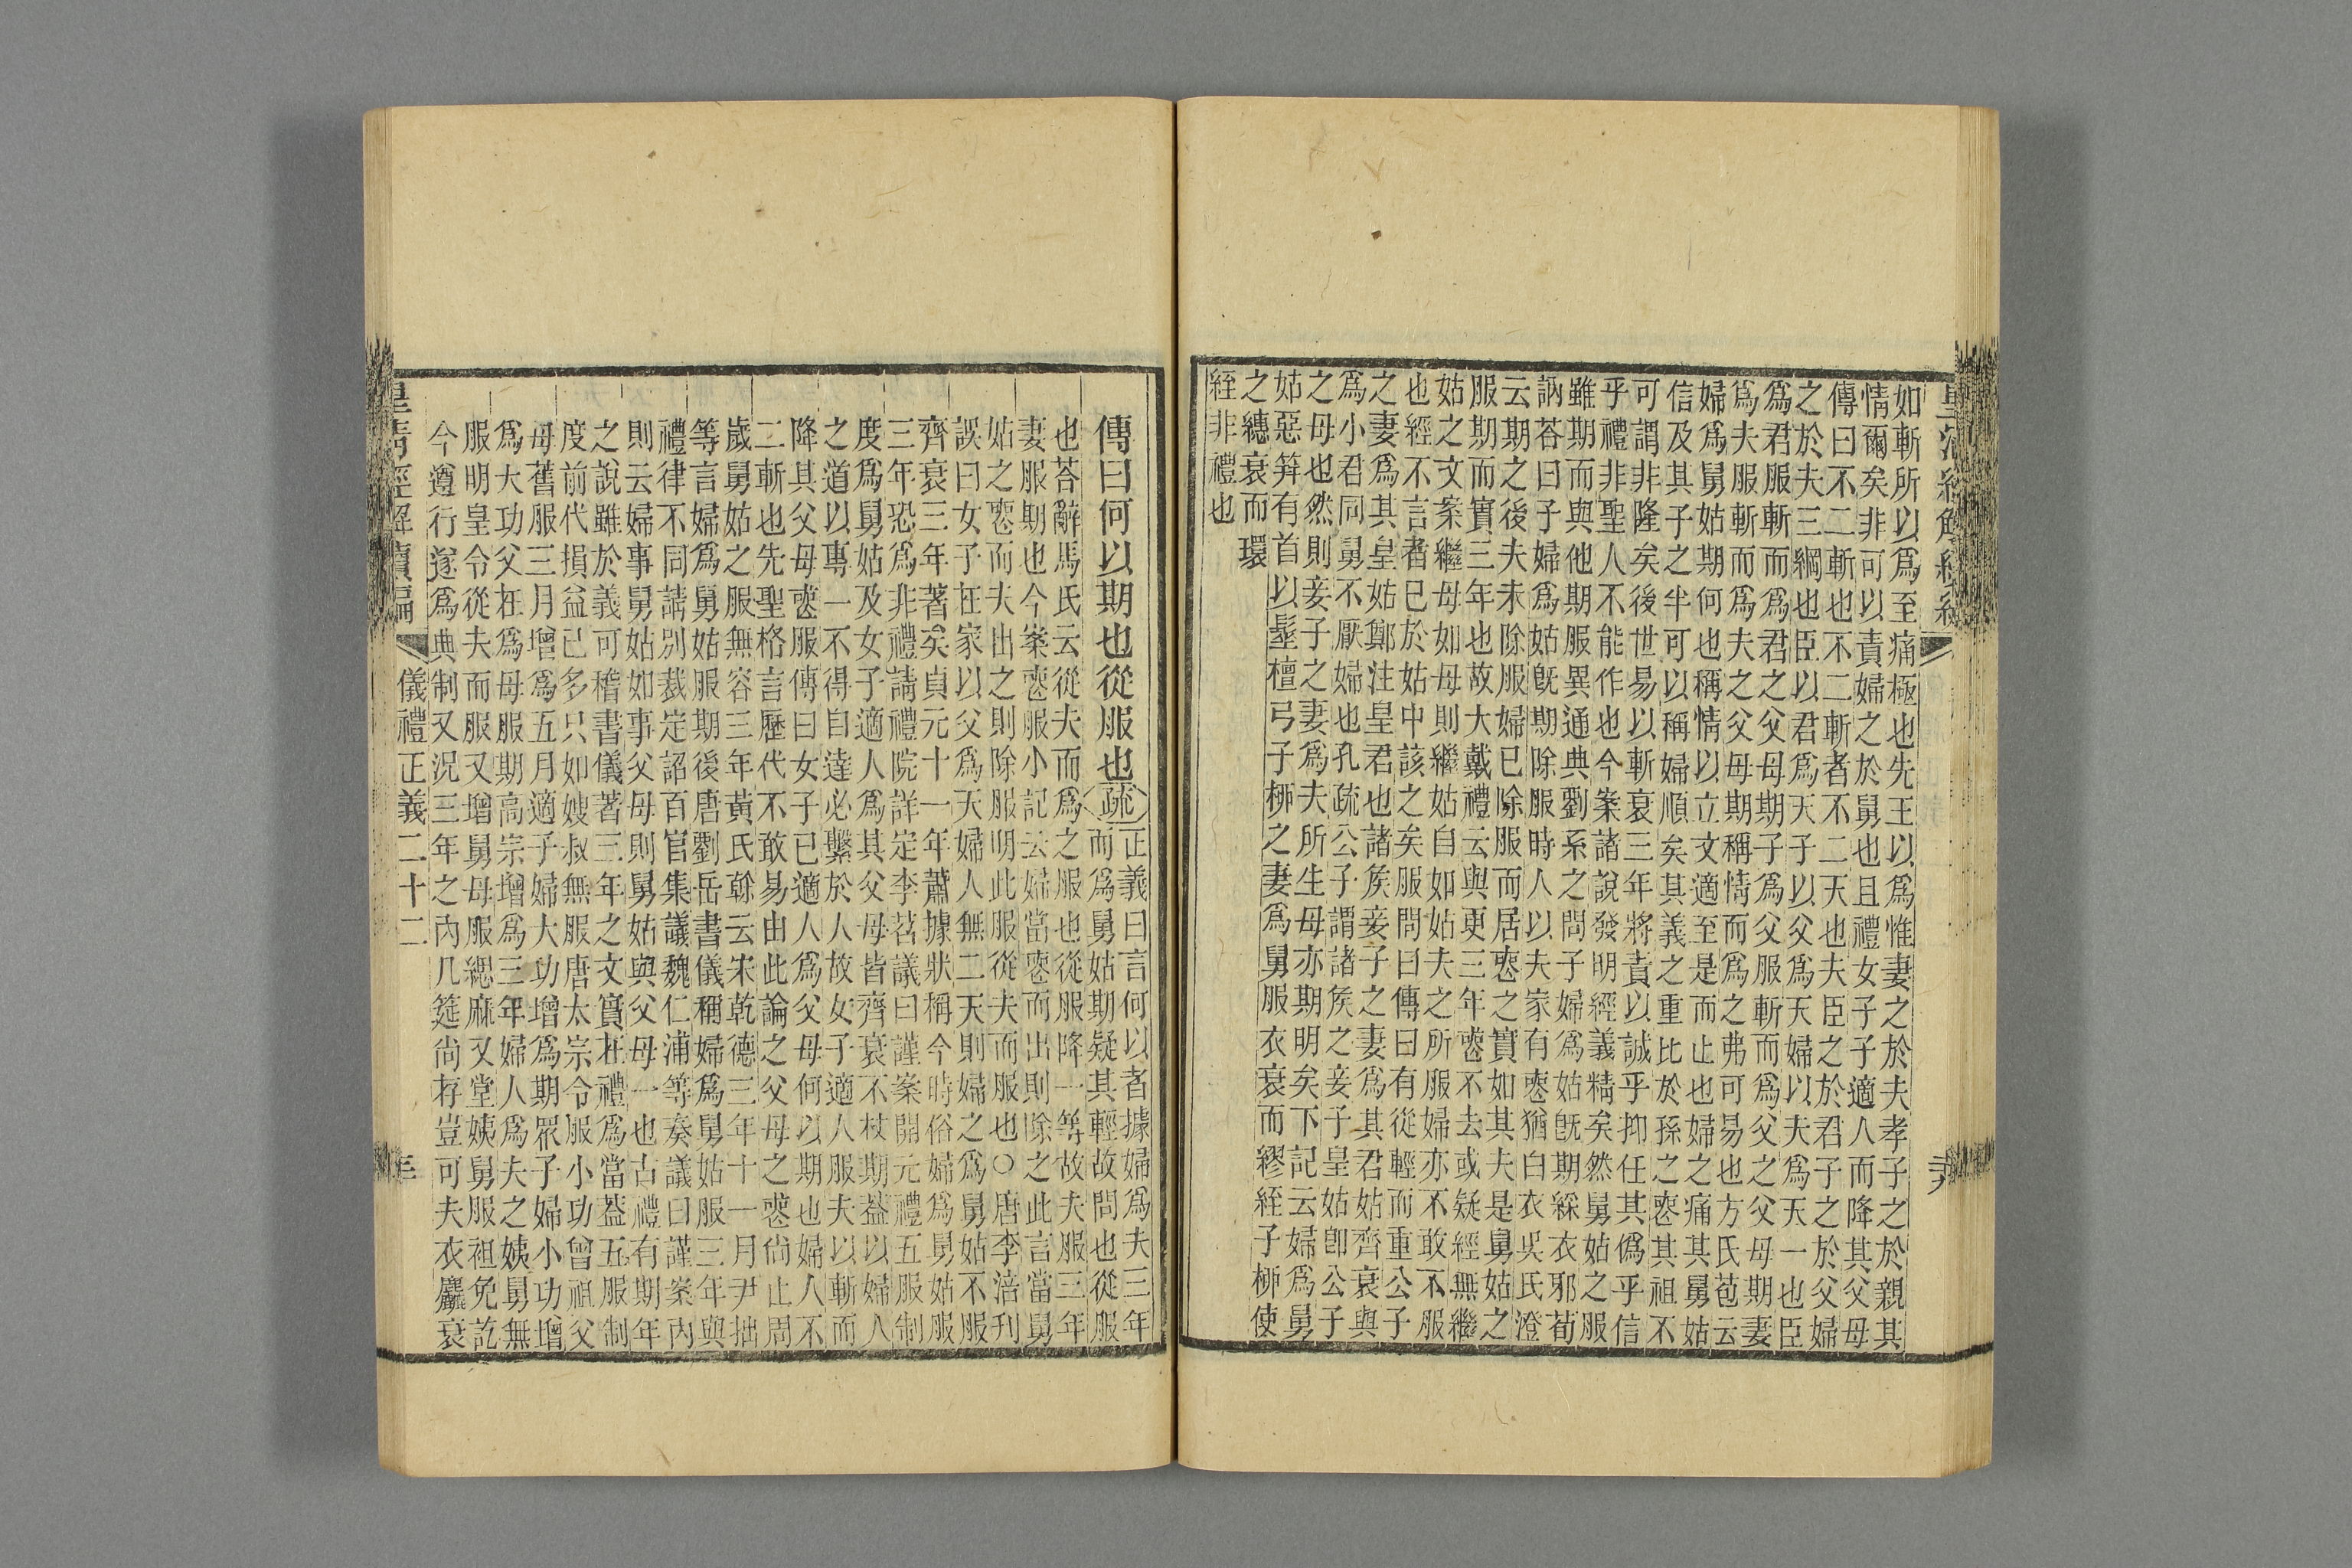 如斬所以爲至痛極也先王以爲惟妻之於夫孝子之於親其
情爾矣非可以責婦之於舅也且禮女子子適人而降其父母
傳曰不二斬也不二斬者不二天也夫臣之於君子之於父婦
之於夫三綱也臣以君爲天子以父爲天婦以夫爲天一也臣
爲君服斬而爲君之父母期子爲父服斬而爲父之父母期妻
爲夫服斬而爲夫之父母期稱情而爲之弗可易也方氏苞云
婦爲舅姑期何也稱情以立文適至是而止也婦之痛其舅姑
信及其子之半可以稱婦順矣其義之重比於孫之喪其祖不
可謂非隆矣後世易以斬衰三年將責以誠乎抑任其僞乎信
乎禮非聖人不能作也今案諸說發明經義精矣然舅姑之服
雖期而與他期服異通典劉系之問子婦爲姑旣期綵衣邪荀
訥荅曰子婦爲姑旣期除服時人以夫家有喪猶白衣吳氏澄
云期之後夫未除服婦已除服而居喪之實如其夫是舅姑之
服期而實三年也故大戴禮云與更三年喪不去或疑經無繼
姑之文案繼母如母則繼姑自如姑夫之所服婦亦不敢不服
也經不言者已於姑中該之矣服問曰傳曰有從輕而重公子
之妻爲其皇姑鄭注皇君也諸矦妾子之妻爲其君姑齊衰與
爲小君同舅不厭婦也孔疏公子謂諸矦之妾子皇姑卽公子
之母也然則妾子之妻爲夫所生母亦期明矣下記云婦爲舅
姑惡笄有首以髽檀弓子栁之妻爲舅服衣衰而繆絰子栁使
之繐衰而環
絰非禮也
傳曰何以期也從服也疏正義曰言何以者據婦爲夫三年
而爲舅姑期疑其輕故問也從服
也荅辭馬氏云從夫而爲之服也從服降一等故夫服三年
妻服期也今案喪服小記云婦當喪而出則除之此言當舅
姑之喪而夫出之則除服明此服從夫而服也○唐李涪刊
誤曰女子在家以父爲天婦人無二天則婦之爲舅姑不服
齊衰三年著矣貞元十一年蕭據狀稱今時俗婦爲舅姑服
三年恐爲非禮請禮院詳定李苕議曰謹案開元禮五服制
度爲舅姑及女子適人爲其父母皆齊衰不杖期葢以婦人
之道以專一不得自達必繫於人故女子適人服夫以斬而
降其父母喪服傳曰女子已適人爲父母何以期也婦人不
二斬也先聖格言歷代不敢易由此論之父母之喪尙止周
歲舅姑之服無容三年黃氏榦云宋乾德三年十一月尹拙
等言婦爲舅姑服期後唐劉岳書儀稱婦爲舅姑服三年與
禮律不同請別裁定詔百官集議魏仁浦等奏議曰謹案內
則云婦事舅姑如事父母則舅姑與父母一也古禮有期年
之說雖於義可稽書儀著三年之文實在禮爲當葢五服制
度前代損益已多只如嫂叔無服唐太宗令服小功曾祖父
母舊服三月增爲五月適子婦大功增爲期眾子婦小功增
爲大功父在爲母服期高宗增爲三年婦人爲夫之姨舅無
服明皇令從夫而服又增舅母服緦麻又堂姨舅服祖免訖
今遵行遂爲典制又況三年之內几筵尙存豈可夫衣麤衰
皇清經解續編 儀禮正義二十二